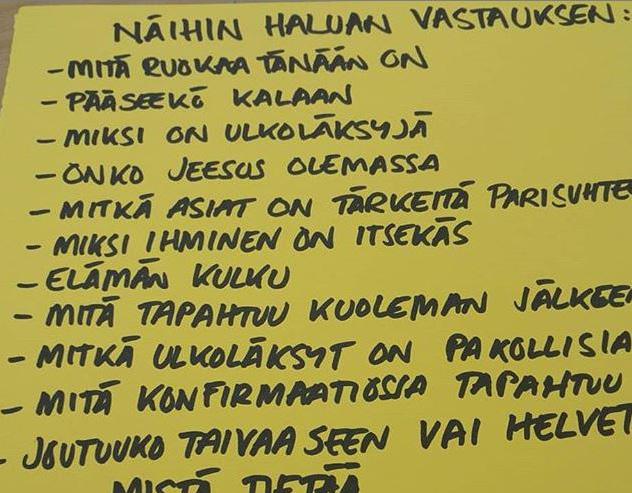 NÄIHIN HALUAN VASTAUKSEN:
- MITÄ RUOKAA TÄNÄÄN ON
- PÄÄSEEKÖ KALAAN
- MIKSI ON ULKOLÄKSYJÄ
- ONKO JEESUS OLEMASSA
- MITKÄ ASIAT ON TÄRKEITÄ PARISUHTEE
- MIKSI IHMINEN ON ITSEKÄS
- ELÄMÄN KULKU
- MITÄ TAPAHTUU KUOLEMAN JÄLKEE
- MITKÄ ULKOLÄKSYT ON PAKOLLISIA
- MITÄ KONFIRMAATIOSSA TAPAHTUU
- JOUTUUKO TAIVAASEEN VAI HELVET
MISTÄ TIETÄÄ